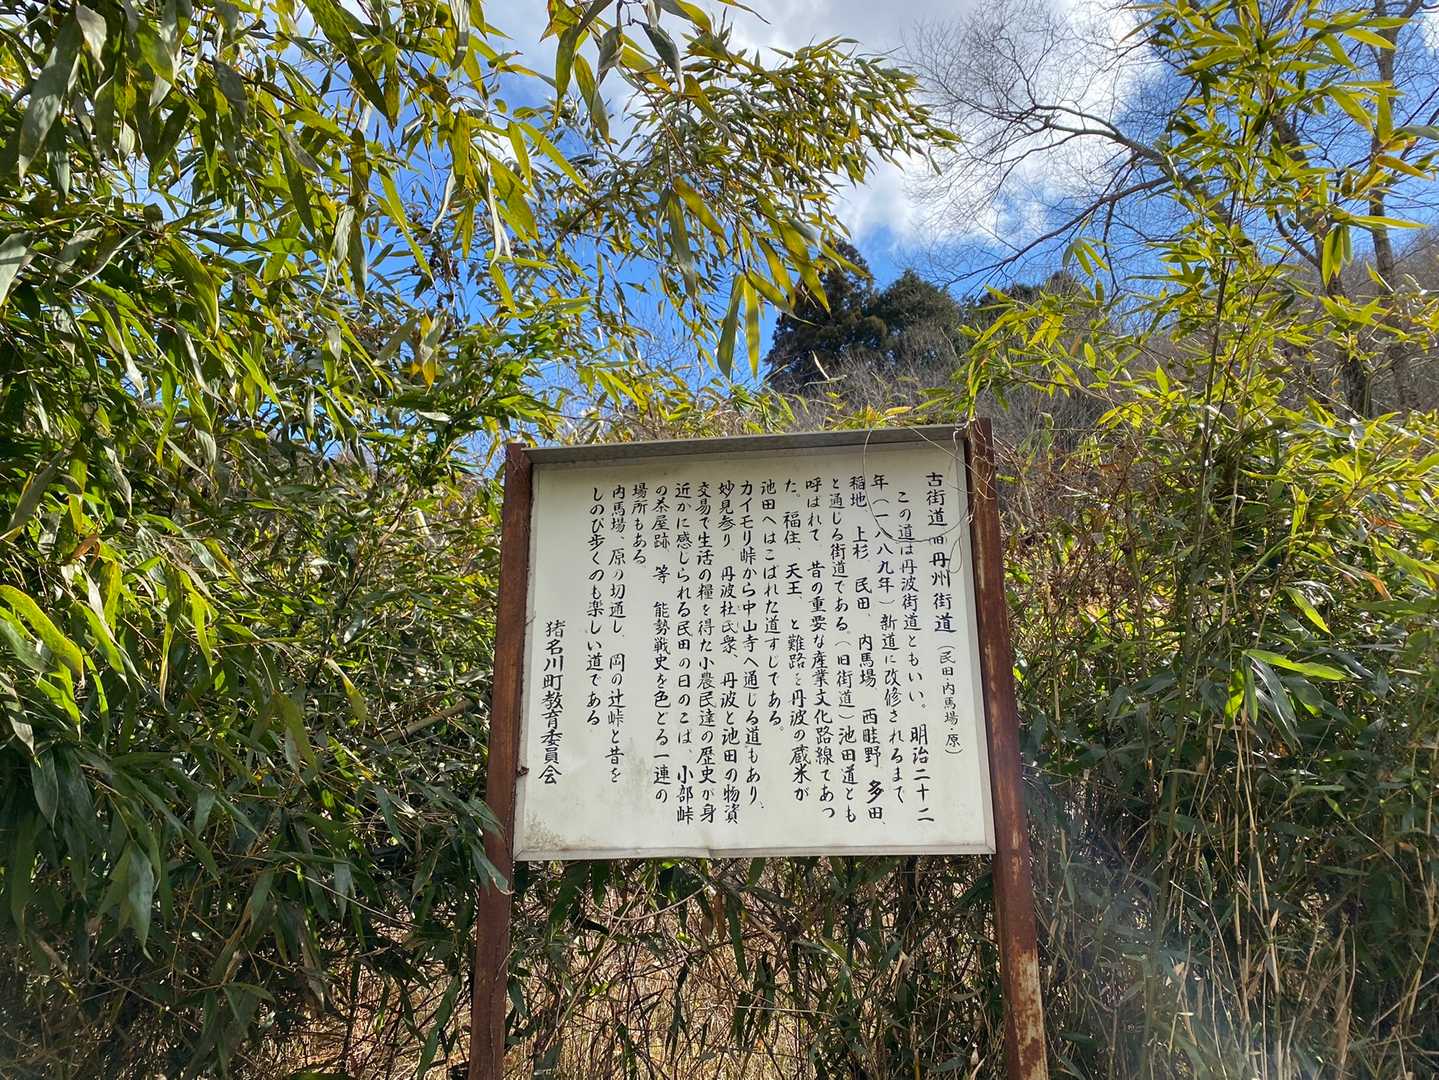 古街道 旧丹州街道（民田・内馬場・原）
この道は丹波街道ともいい。明治二十二
年（一八八九年）新道に改修されるまで
稲地、上杉、民田、内馬場、西畦野、多田、
と通じる街道である。（旧街道）池田道とも
呼ばれて、昔の重要な産業文化路線であつ
た。福住、天王、と難路を丹波の蔵米が
池田へはこばれた道すじである。
カイモリ峠から中山寺へ通じる道もあり、
妙見参り、丹波杜氏衆、丹波と池田の物資
交易で生活の糧を得た小農民達の歴史が身
近かに感じられる民田の日のこは、小部峠
の茶屋跡、等、能勢戦史を色どる一連の
場所もある。
内馬場、原の切通し、岡の辻峠と昔を
しのび歩くのも楽しい道である。
猪名川町教育委員会